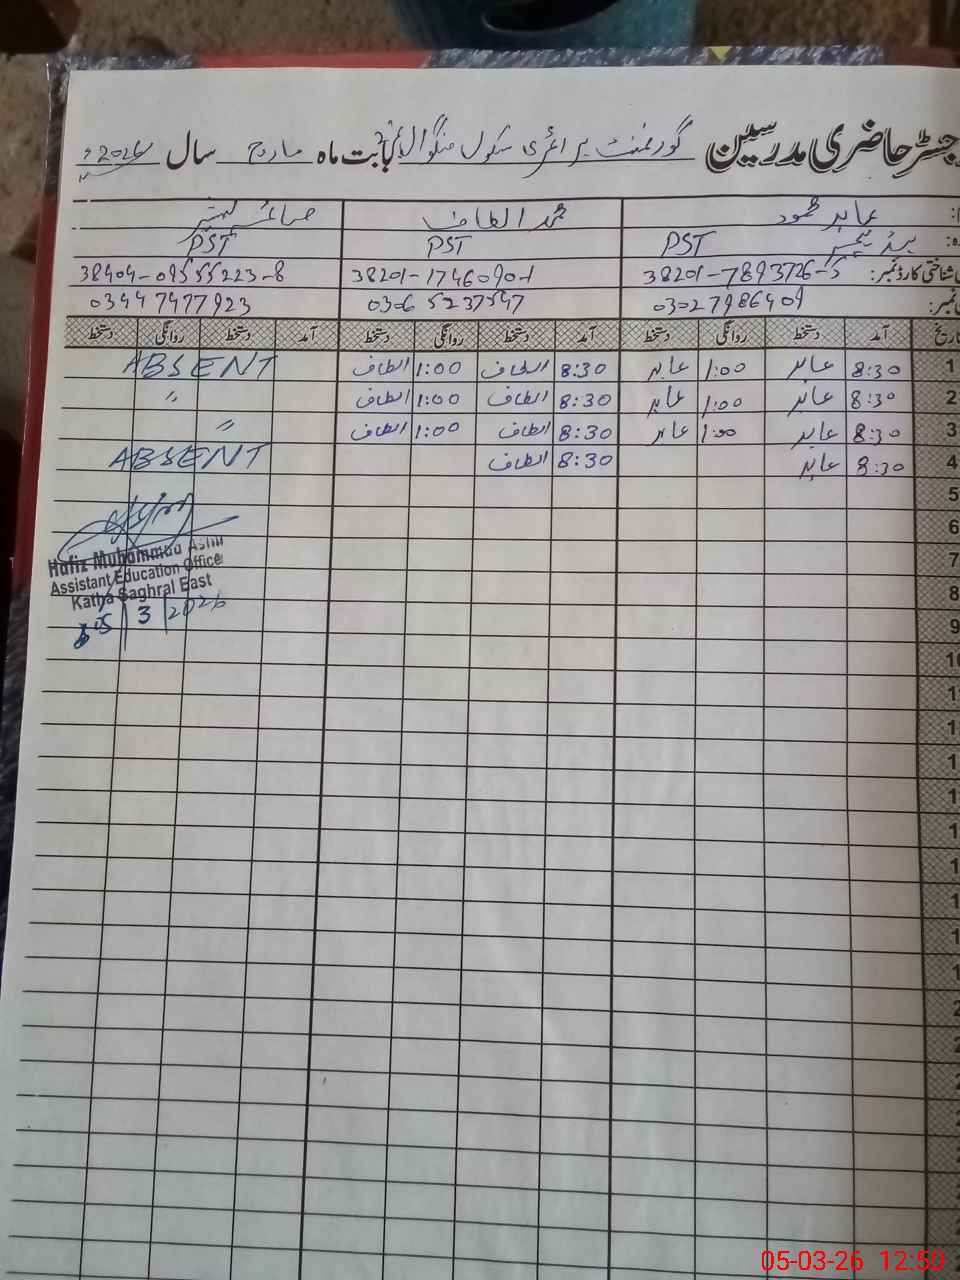 رجسٹر حاضری مدرسین گورنمنٹ پرائمری سکول منگوال بابت ماہ مارچ سال 2026ء
عابد محمود محمد الطاف صائمہ
PST PST PST
شناختی کارڈ نمبر: 38201-7893726-5 38201-1746090-1 38404-0955223-8
نمبر: 03027986409 0306 5237547 03447477923
تاریخ آمد دستخط روانگی دستخط آمد دستخط روانگی دستخط آمد دستخط روانگی دستخط
1 8:30 عابد 1:00 عابد 8:30 الطاف 1:00 الطاف ABSENT
2 8:30 عابد 1:00 عابد 8:30 الطاف 1:00 الطاف 〃
3 8:30 عابد 1:00 عابد 8:30 الطاف 1:00 الطاف 〃
4 8:30 عابد 8:30 الطاف ABSENT
5
6
7
8
9
Hafiz Muhammad
Assistant Education Officer
Katha Saghral East
05/3/2026
05-03-26 12:50